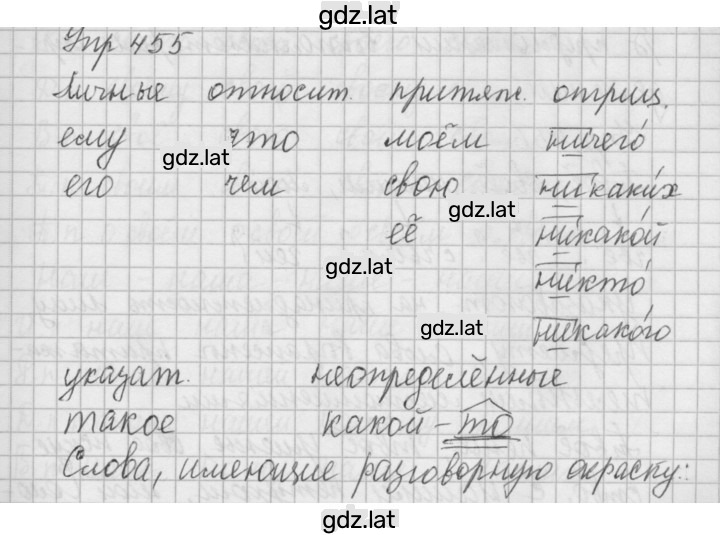 gdz.lat
Упр 455
Личные относит. притяж. отриц.
ему что моём ничего́
gdz.lat
его чем свою никаки́х
gdz.lat
её никако́й
gdz.lat
никто́
gdz.lat
никако́го
указат. неопределённые
такое какой-то
Слова, имеющие разговорную окраску:
gdz.lat